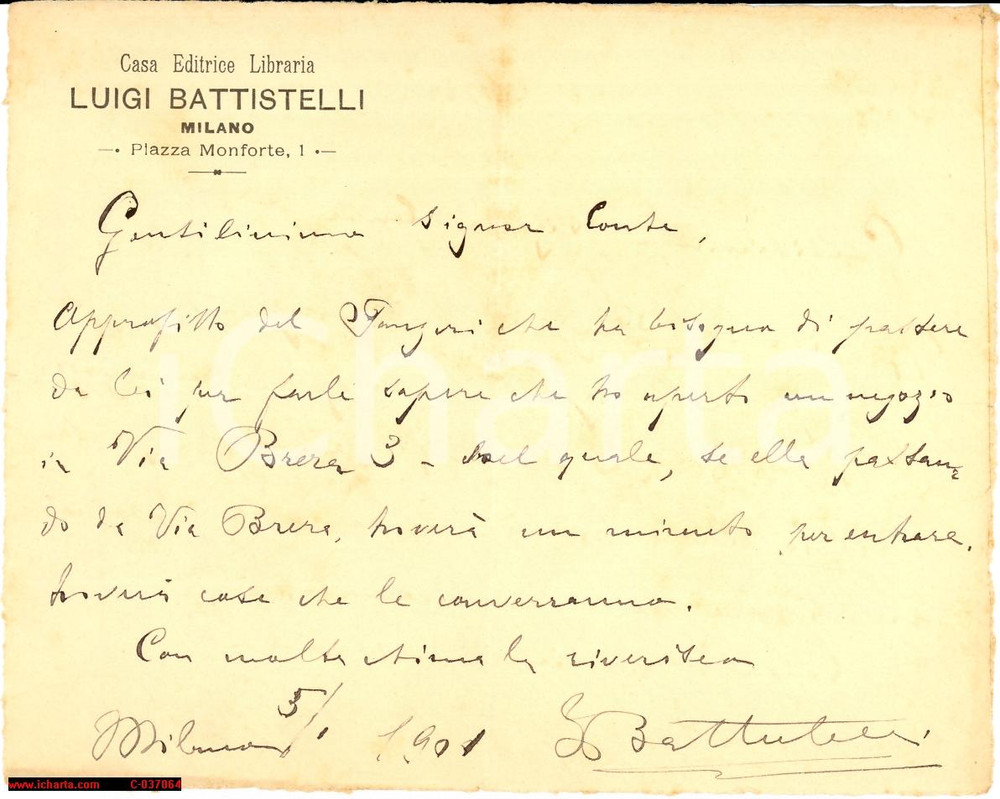 Casa Editrice Libraria
LUIGI BATTISTELLI
MILANO
Piazza Monforte, 1
Gentilissimo Signor Conte,
Approfitto del che ha bisogno di passare
da lei per farle sapere che ho aperto un negozio
in Via Brera 3 - nel quale, se ella passan=
do da Via Brera, troverà un minuto per entrare,
troverà cose che le converranno.
Con molta stima la riverisco
Milano 5/1 1901 L Battistelli
iCharta
www.icharta.com C-037064